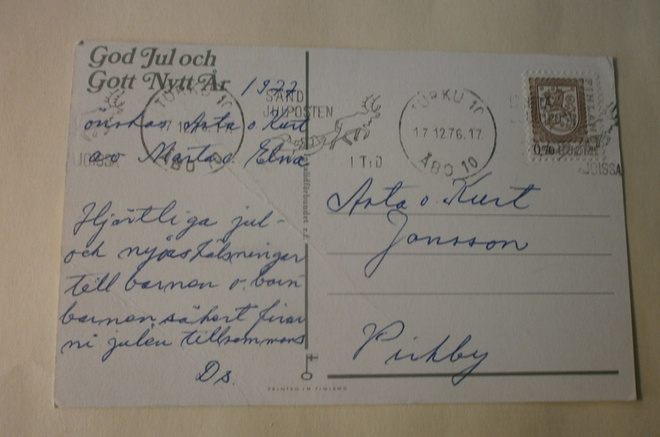 God Jul och
Gott Nytt År 1977
önskas Asta o Kurt
av Märta o. Elna
Hjärtliga jul-
och nyårshälsningar
till barnen o. barn
barnen, säkert firar
ni julen tillsammans
Ds.
TURKU 10
ÅBO 10
SÄND
JULPOSTEN
I TID
TURKU 10
17.12.76.17
ÅBO 10
0,70
JOISSA
Asta o Kurt
Jansson
Pickby
PRINTED IN FINLAND